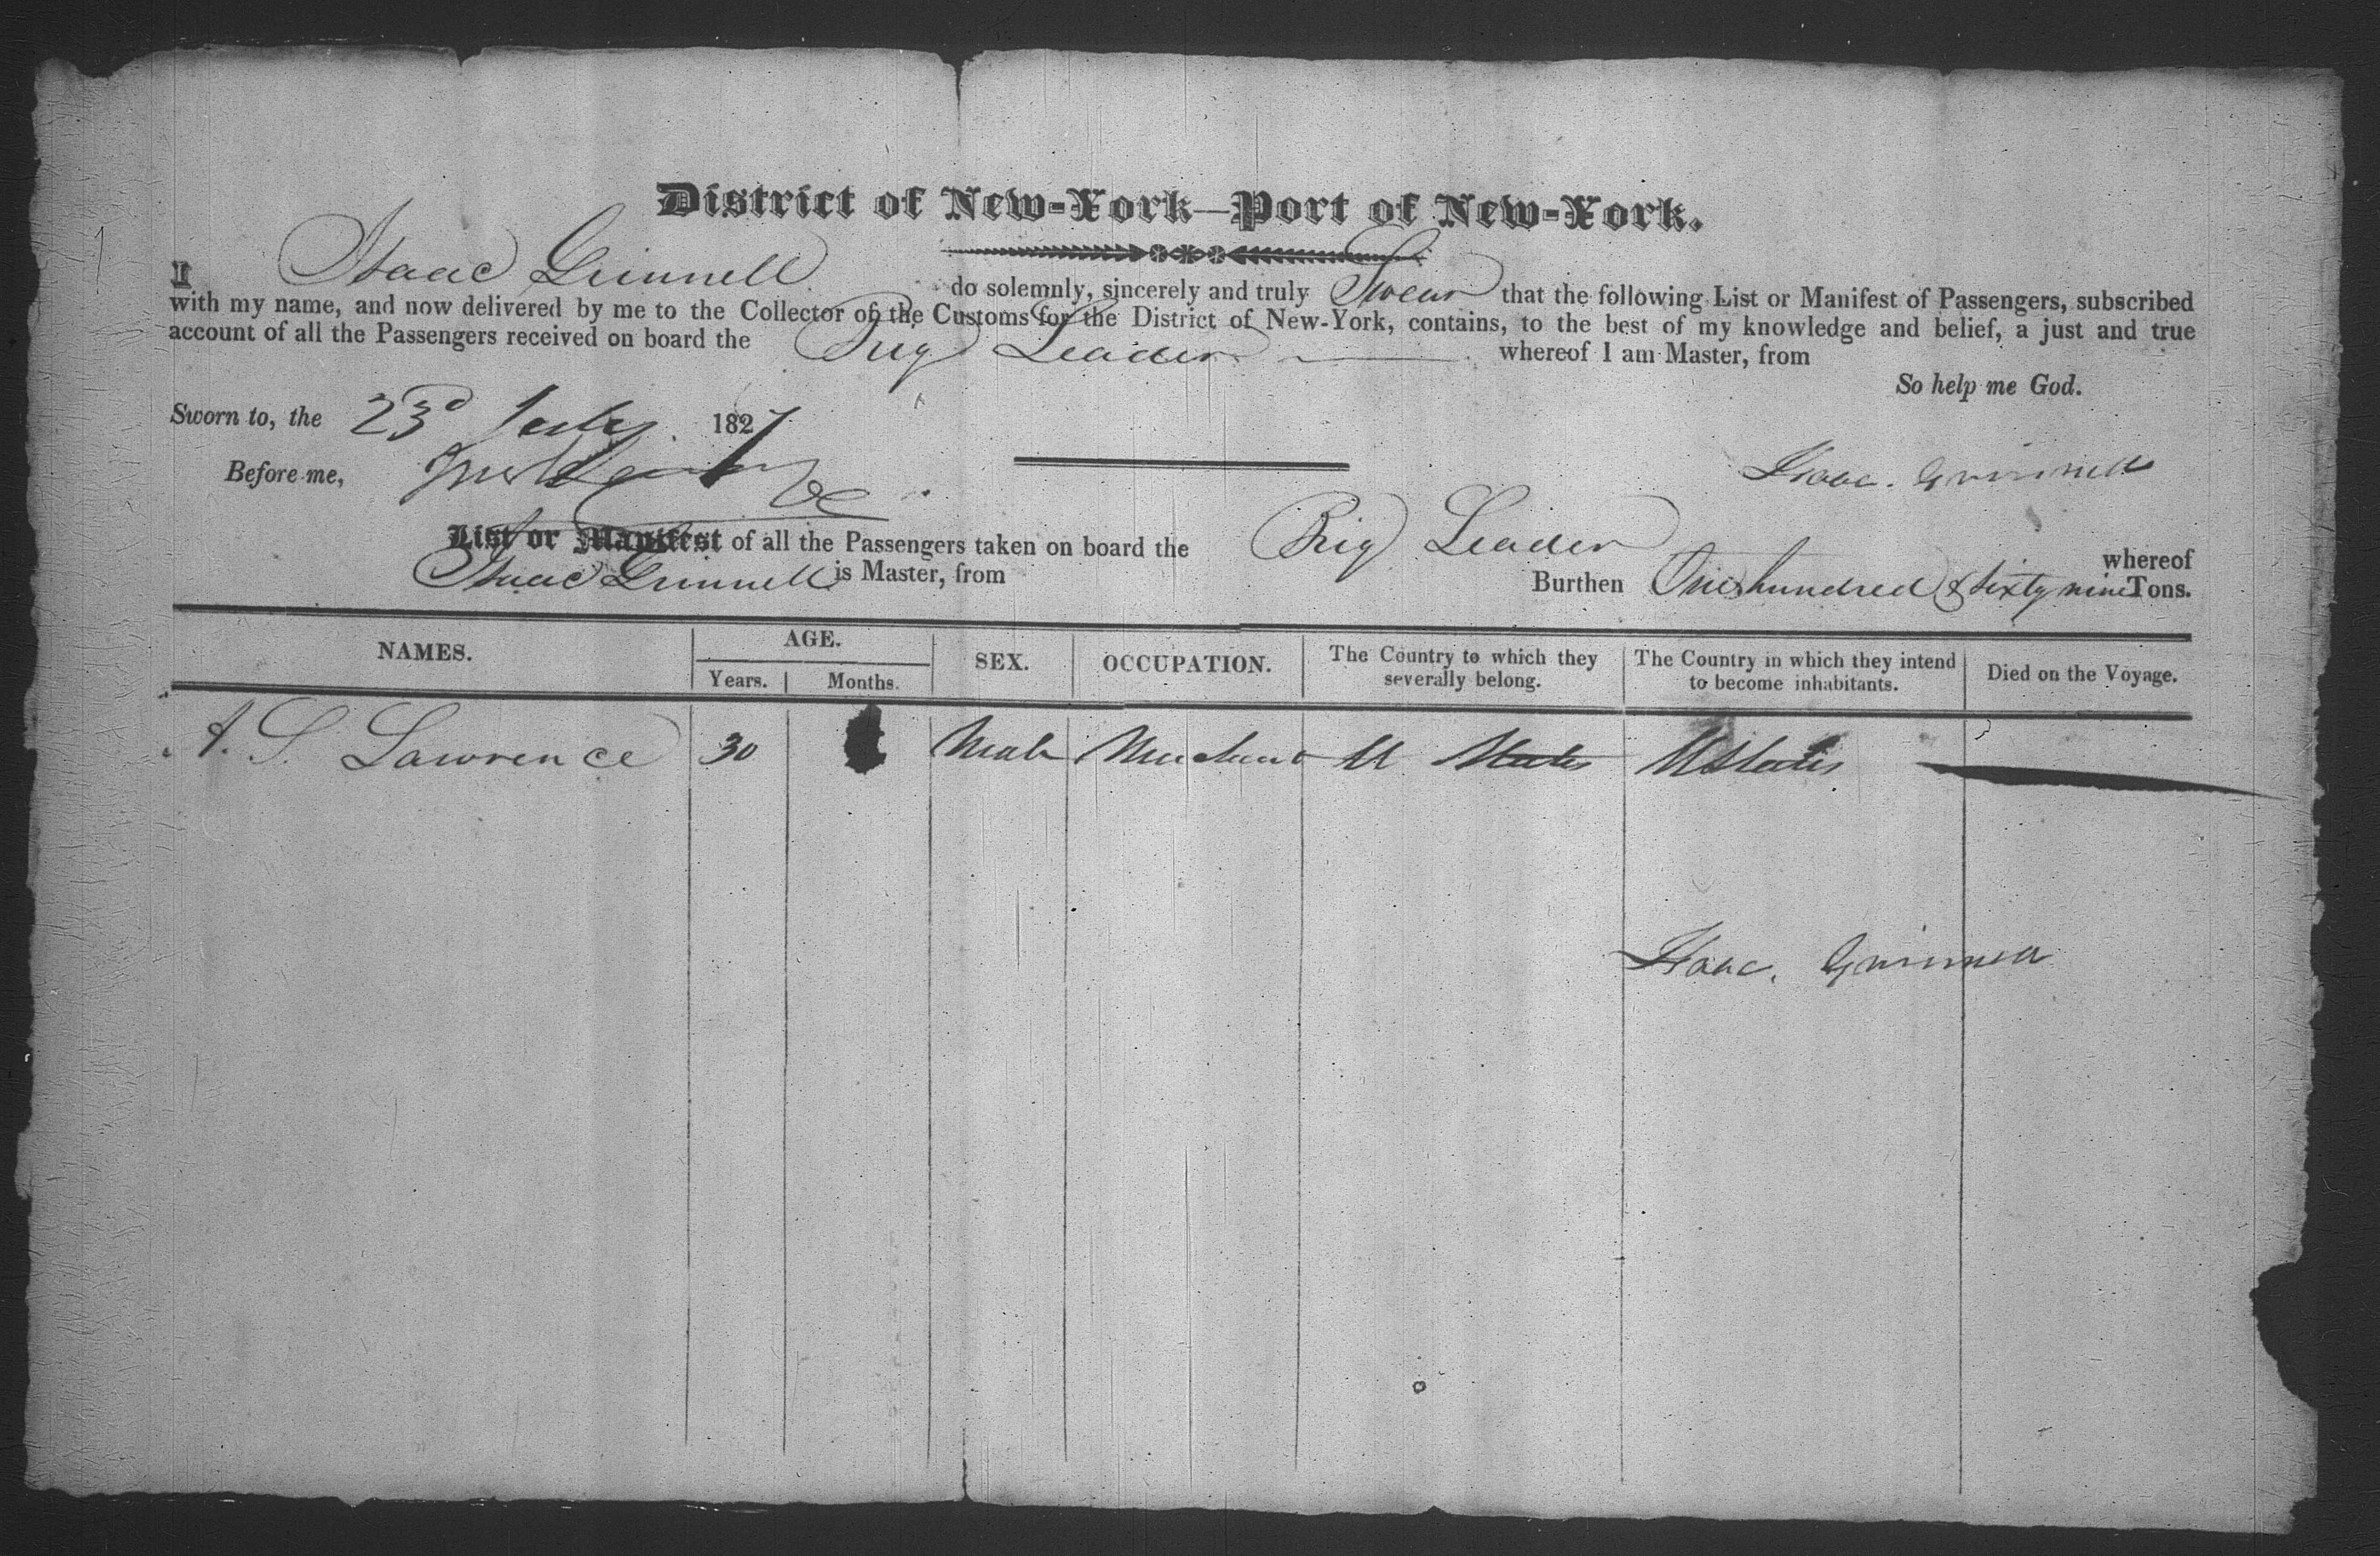 District of New-York—Port of New-York.
I Isaac Grinnell do solemnly, sincerely and truly Swear that the following List or Manifest of Passengers, subscribed
with my name, and now delivered by me to the Collector of the Customs for the District of New-York, contains, to the best of my knowledge and belief, a just and true
account of all the Passengers received on board the Brig Leader whereof I am Master, from
So help me God.
Sworn to, the 23d July 1827
Before me,
Isaac. Grinnell
List or Manifest of all the Passengers taken on board the Brig Leader whereof
Isaac Grinnell is Master, from Burthen One hundred & sixty nine Tons.
NAMES. AGE. SEX. OCCUPATION. The Country to which they severally belong. The Country in which they intend to become inhabitants. Died on the Voyage.
Years. Months.
A. S. Lawrence 30 Male Merchant U States U States
Isaac. Grinnell